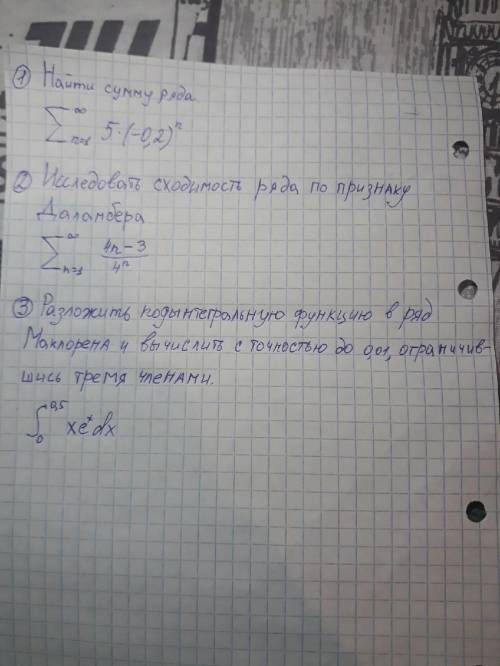 ① Найти сумму ряда
∞
∑ 5·(-0,2)ⁿ
n=1
② Исследовать сходимость ряда по признаку
Даламбера
∞
∑ 4n-3
n=1 4ⁿ
③ Разложить подынтегральную функцию в ряд
Маклорена и вычислить с точностью до 0,01, ограничив-
шись тремя членами.
0,5
∫ xeˣdx
0